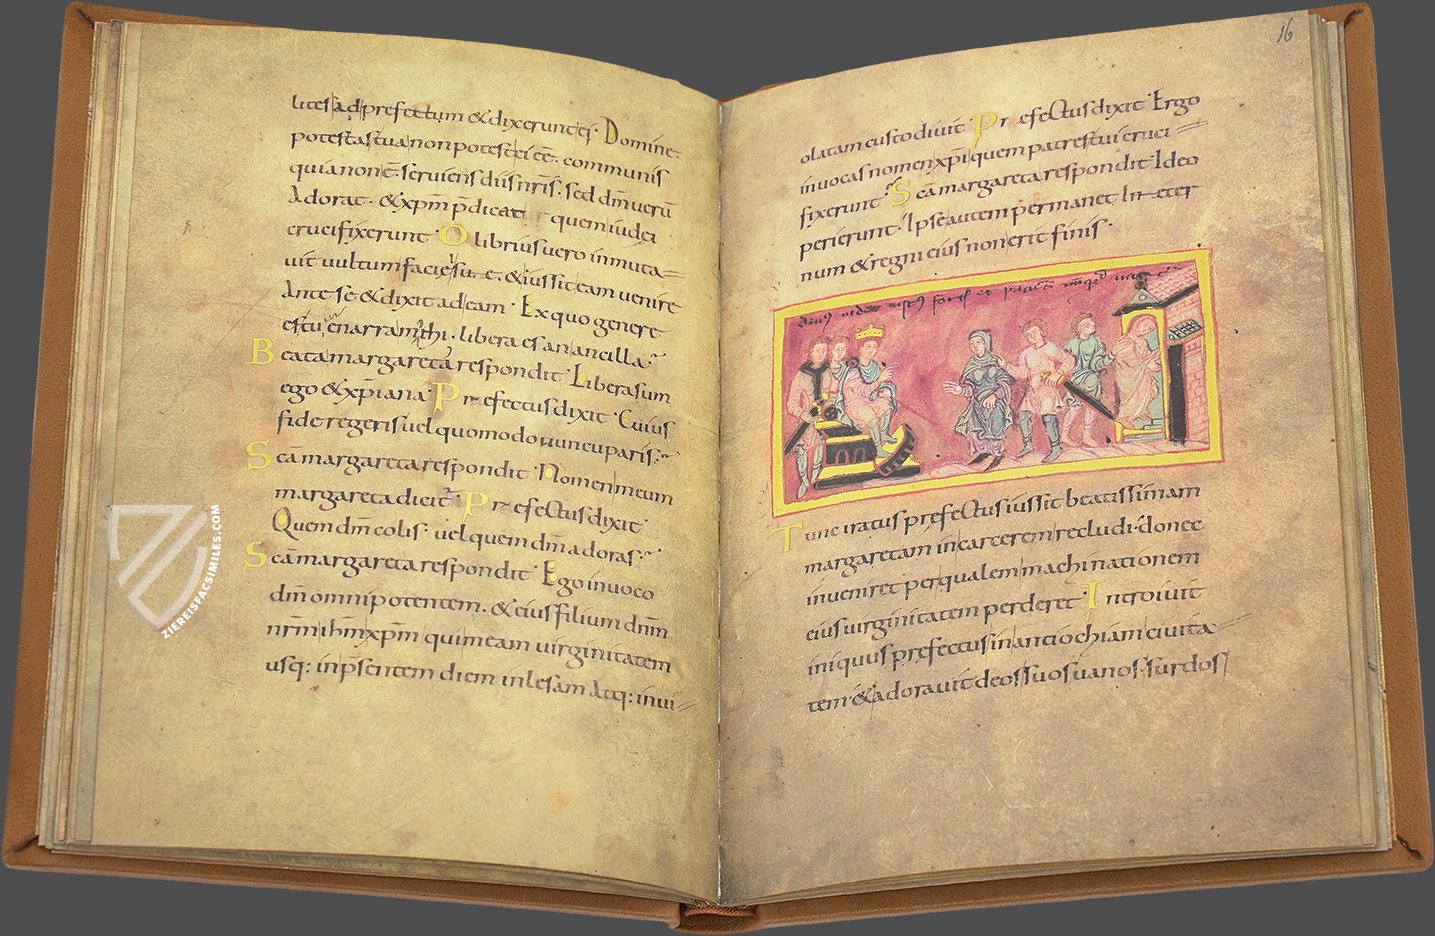 lites ad prefectum & dixerunt ei · Domine ·
potestas tua non potest ei eē · communis
quia non ē · seruiens diis nr̄is · sed dm̄ uerū
Adorat · & xp̄m p̄dicat quem iudei
crucifixerunt · Olibrius uero inmuta
uit uultum faciei su e · & iussit eam uenire
Ante se & dixit ad eam · Ex quo genere
es tu enarra mihi · libera es an ancilla ·
Beata margareta respondit · Libera sum
ego & xp̄iana · Prefectus dixit · Cuius
fide regeris uel quomodo nuncuparis ·
Sc̄a margareta respondit · Nomen meum
margareta dicit · Prefectus dixit ·
Quem dm̄ colis · uel quem dm̄ adoras ·
Sc̄a margareta respondit · Ego inuoco
dm̄ omnipotentem · & eius filium dnm̄
nr̄m ihm̄ xp̄m qui meam uirginitatem
usq: in p̄sentem diem inlesam Atq: inui
16
olatam custodiuit · Prefectus dixit · Ergo
inuocas nomen xp̄i quem patres tui cruci
fixerunt · Sc̄a margareta respondit · Ideo
perierunt · Ipse autem permanet In eter
num & regni eius non erit finis ·
iustus fortis et patiens
Tunc iratus prefectus iussit beatissimam
margaretam in carcerem recludi · donec
inueniret per qualem machinationem
eius uirginitatem perderet · Introiuit
iniquus prefectus in antiochiam ciuita
tem · & adorauit deos suos uanos · surdos
ZIEREISFACSIMILES.COM